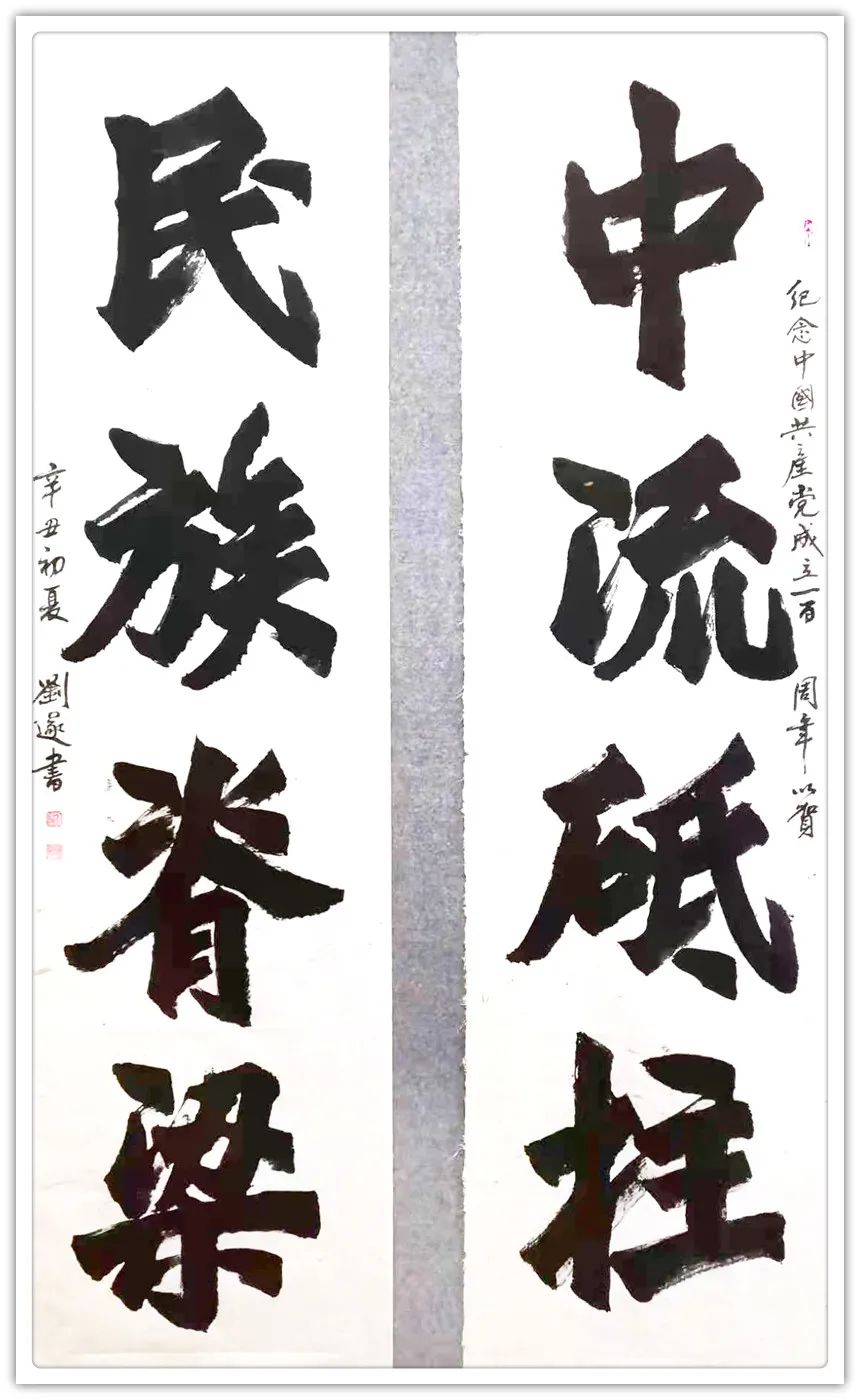 纪念中國共産党成立一百周年以賀
中流砥柱
民族脊梁
辛丑初夏 劉遂書